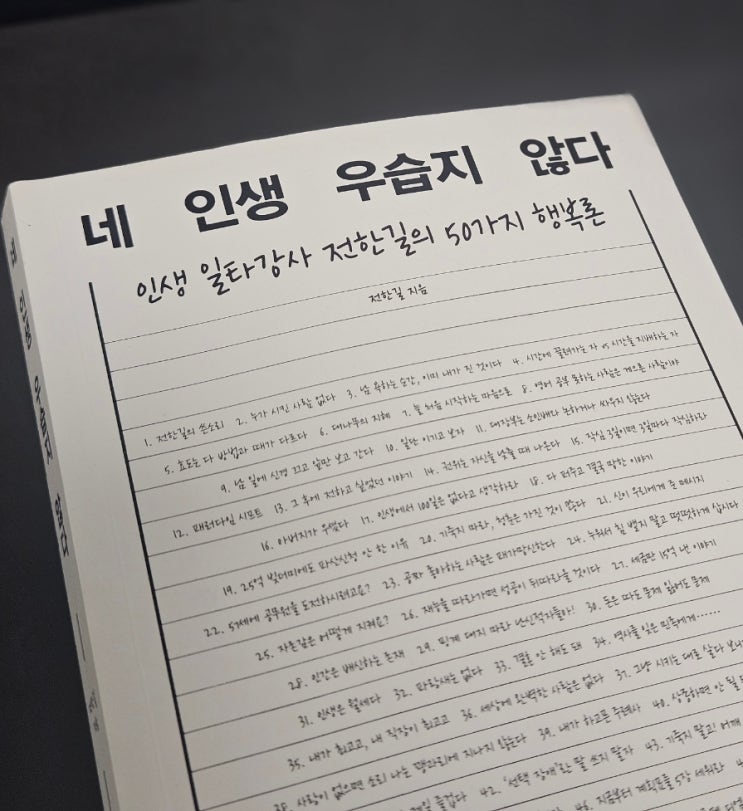 네 인생 우습지 않다
인생 일타강사 전한길의 50가지 행복론
전한길 지음
1. 전한길의 쓴소리 2. 누가 시킨 사람 없다 3. 남 욕하는 순간, 이미 내가 진 것이다 4. 시간에 끌려가는 자 vs 시간을 지배하는 자
5. 효도는 다 방법과 때가 다르다 6. 대나무의 지혜 7. 늘 처음 시작하는 마음으로 8. 영어 공부 못하는 사람은 게으른 사람이야
9. 남 일에 신경 끄고 앞만 보고 간다 10. 일단 이기고 보자 11. 대장부는 소인배와 논하거나 싸우지 않는다
12. 패러다임 시프트 13. 그 후에 전하고 싶었던 이야기 14. 권위는 자신을 낮출 때 나온다 15. 작심 3일이면 3일마다 작심하라
16. 아버지가 우셨다 17. 인생에서 100일은 없다고 생각하라 18. 다 퍼주고 결국 망한 이야기
19. 25억 빚더미에도 파산신청 안 한 이유 20. 기죽지 마라, 청춘은 가진 것이 많다 21. 신이 우리에게 준 메시지
22. 57세에 공무원을 도전하시려고요? 23. 공짜 좋아하는 사람은 패가망신한다 24. 누워서 침 뱉지 말고 떳떳하게 삽시다
25. 자존감은 어떻게 지켜요? 26. 재능을 따라가면 성공이 뒤따라올 것이다 27. 세금만 15억 낸 이야기
28. 인간은 배신하는 존재 29. 핑계 대지 마라 난신적자들아! 30. 돈은 따도 문제 잃어도 문제
31. 인생은 월세다 32. 파랑새는 없다 33. 결혼 안 해도 돼 34. 역사를 잊은 민족에게……
35. 내가 최고고, 내 직장이 최고고 36. 세상에 완벽한 사람은 없다 37. 그냥 시키는 대로 살다 보니
38. 사랑이 없으면 소리 나는 꽹과리에 지나지 않는다 39. 내가 하고픈 주례사 40. 상종하면 안 될
즐겁다 42. '선택 장애'란 말 쓰지 말자 43. 기죽지 말고! 어깨
46. 지금부터 계획표를 5장 세워라